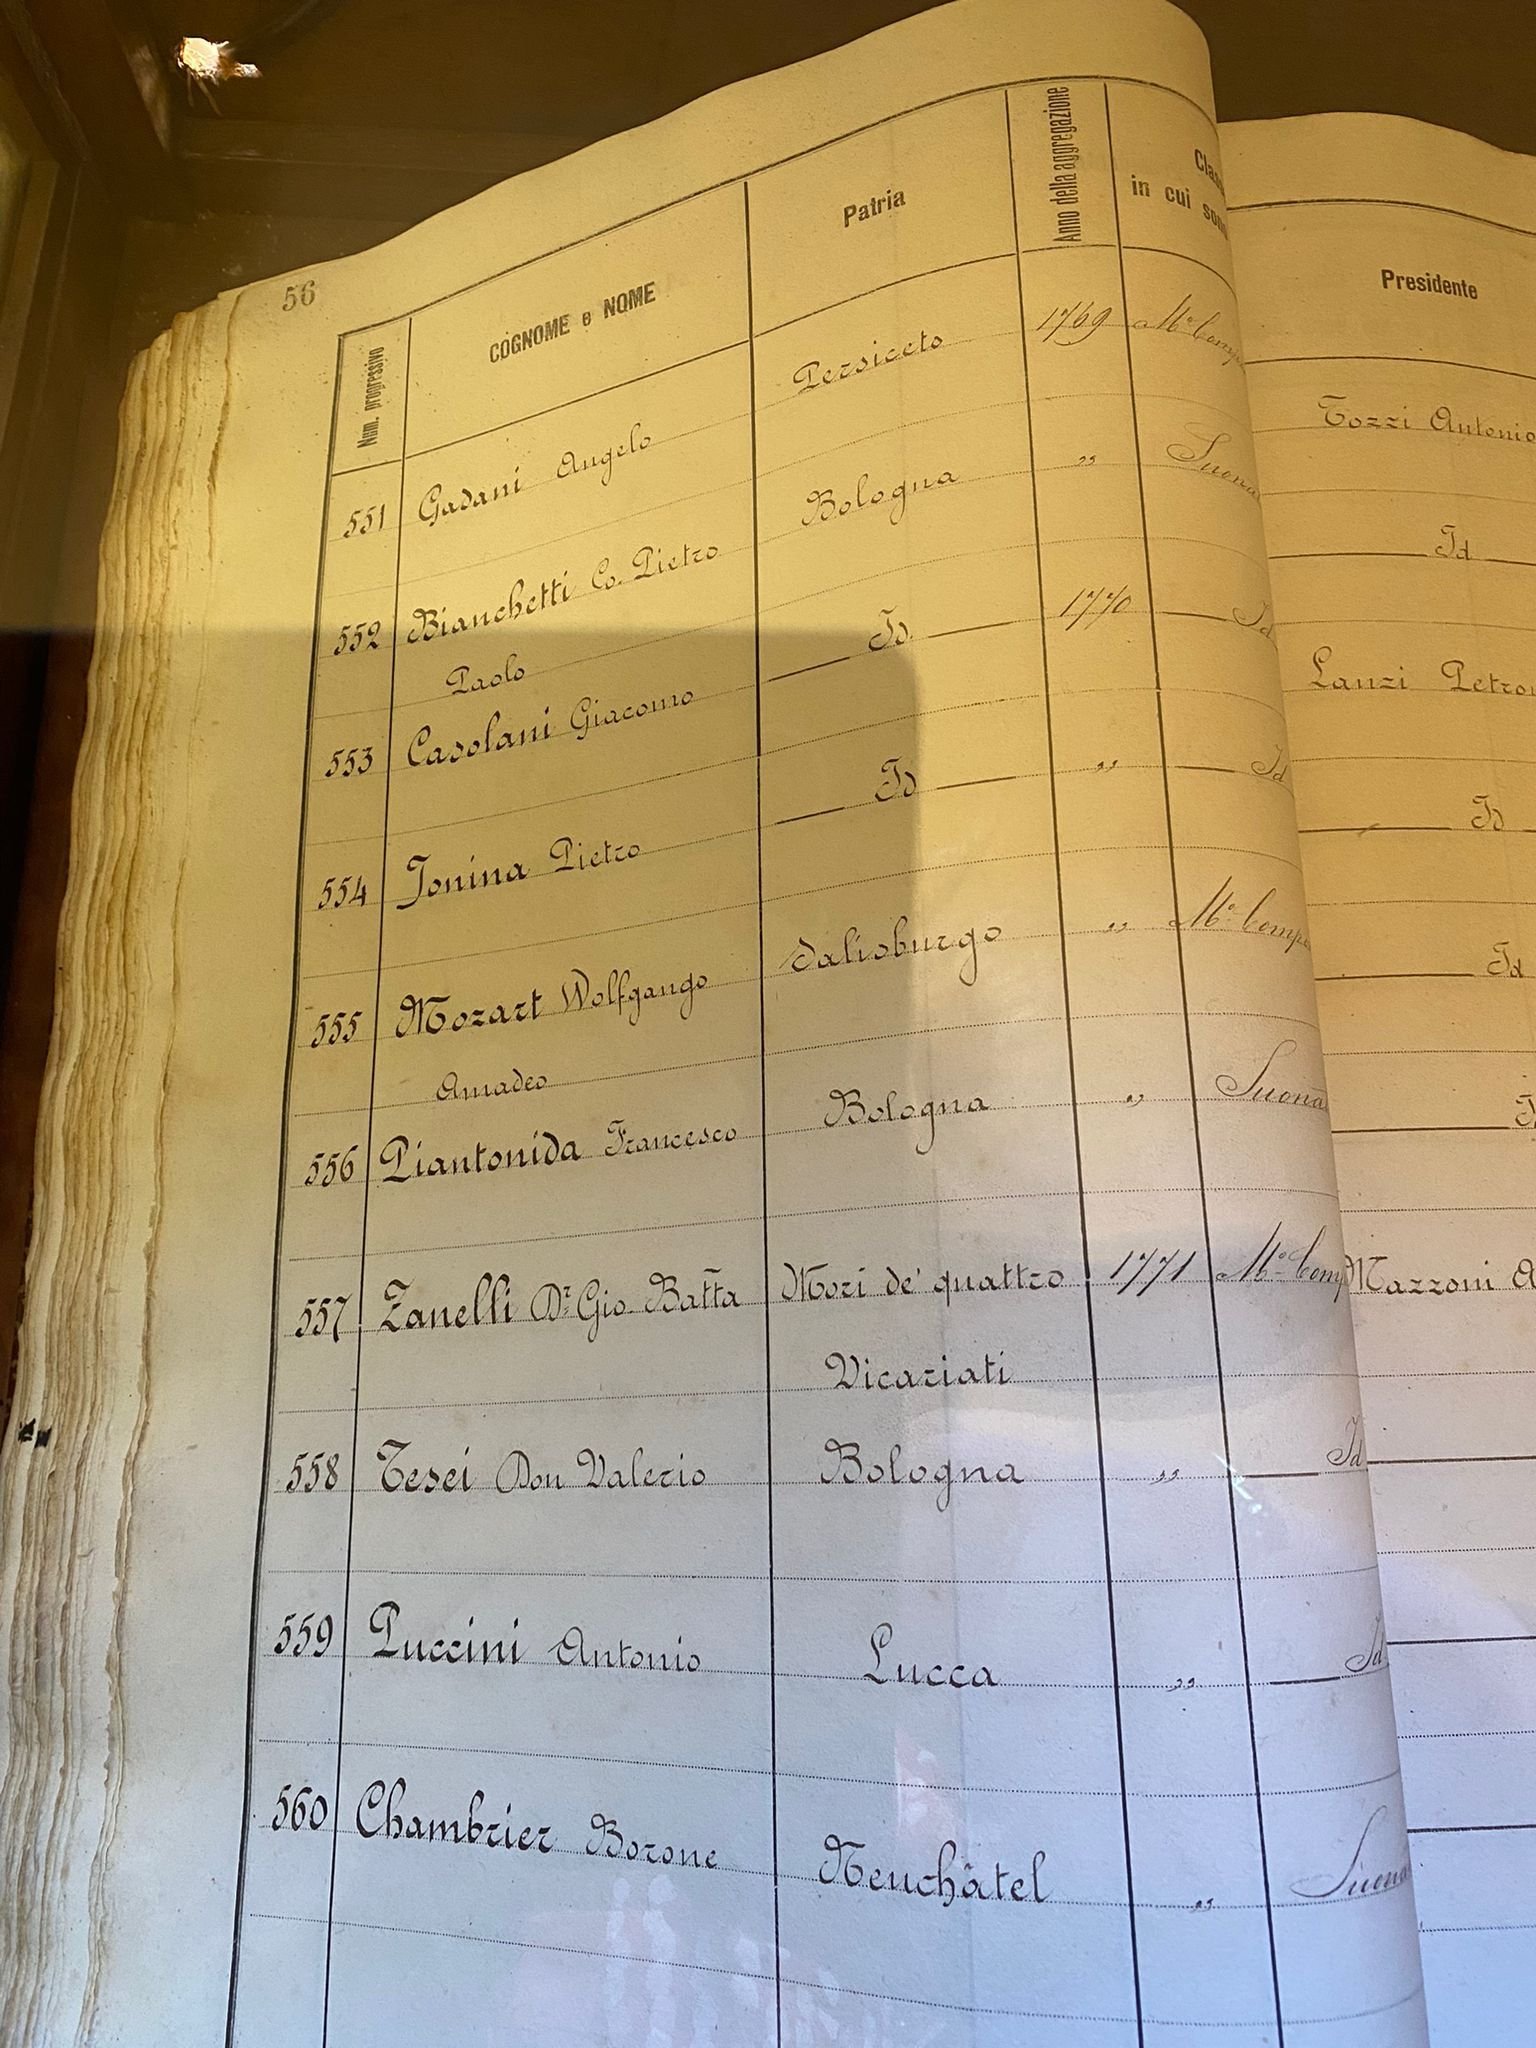 56
Num. progressivo COGNOME e NOME Patria Anno della aggregazione in cui Presidente
551 Gadani Angelo Persiceto 1769 Mº Comp Tozzi Antonio
552 Bianchetti Co. Pietro Bologna „ Suona Id
Paolo
553 Casolani Giacomo Id 1770 Id Lanzi Petro
554 Jonina Pietro Id „ Id Id
555 Mozart Wolfgango Salisburgo „ Mº Comp Id
Amadeo
556 Piantonida Francesco Bologna „ Suona
557 Zanelli Dr Gio Batta Mori de' quattro 1771 Mº Comp Mazzoni A
Vicariati
558 Tesei Don Valerio Bologna „ Id
559 Puccini Antonio Lucca „ Id
560 Chambrier Borone Neuchâtel „ Suona